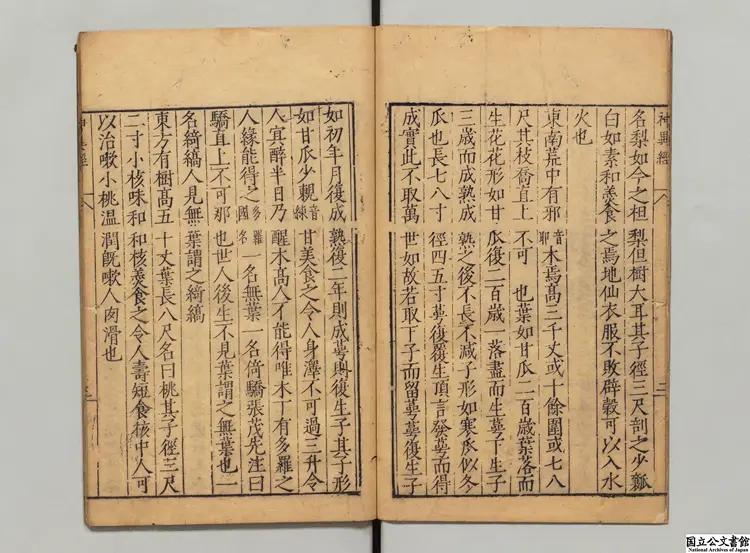 名梨如今之柤梨但樹大耳其子徑三尺剖之少瓤
白如素和羹食之焉地仙衣服不敗辟穀可以入水
火也
東南荒中有邪音耶木焉高三千丈或十餘圍或七八
尺其枝喬直上不可也葉如甘瓜二百歲葉落而
生花花形如甘瓜復二百歲落盡而生萼下生子
三歲而成熟成熟之後不長不減子形如寒瓜似冬
瓜也長七八寸徑四五寸萼復覆生頂言發萼而得
成實此不取萬世如故若取下子而留萼萼復生子
如初年月復成熟復二年則成萼則復生子其子形
如甘瓜少親音練甘美食之令人身澤不可過三升令
人冥醉半日乃醒木高人不能得唯木丁有多羅之
人緣能得之多羅國名一名無葉一名倚驕張茂先注曰
驕直上不可那也世人後生不見葉謂之無葉也一
名綺縞人見無葉謂之綺縞
東方有樹高五十丈葉長八尺名曰桃其子徑三尺
二寸小核味和和核羹食之令人壽短食核中人可
以治嗽小桃温潤既嗽人肉滑也
神異經
三
国立公文書館
National Archives of Japan